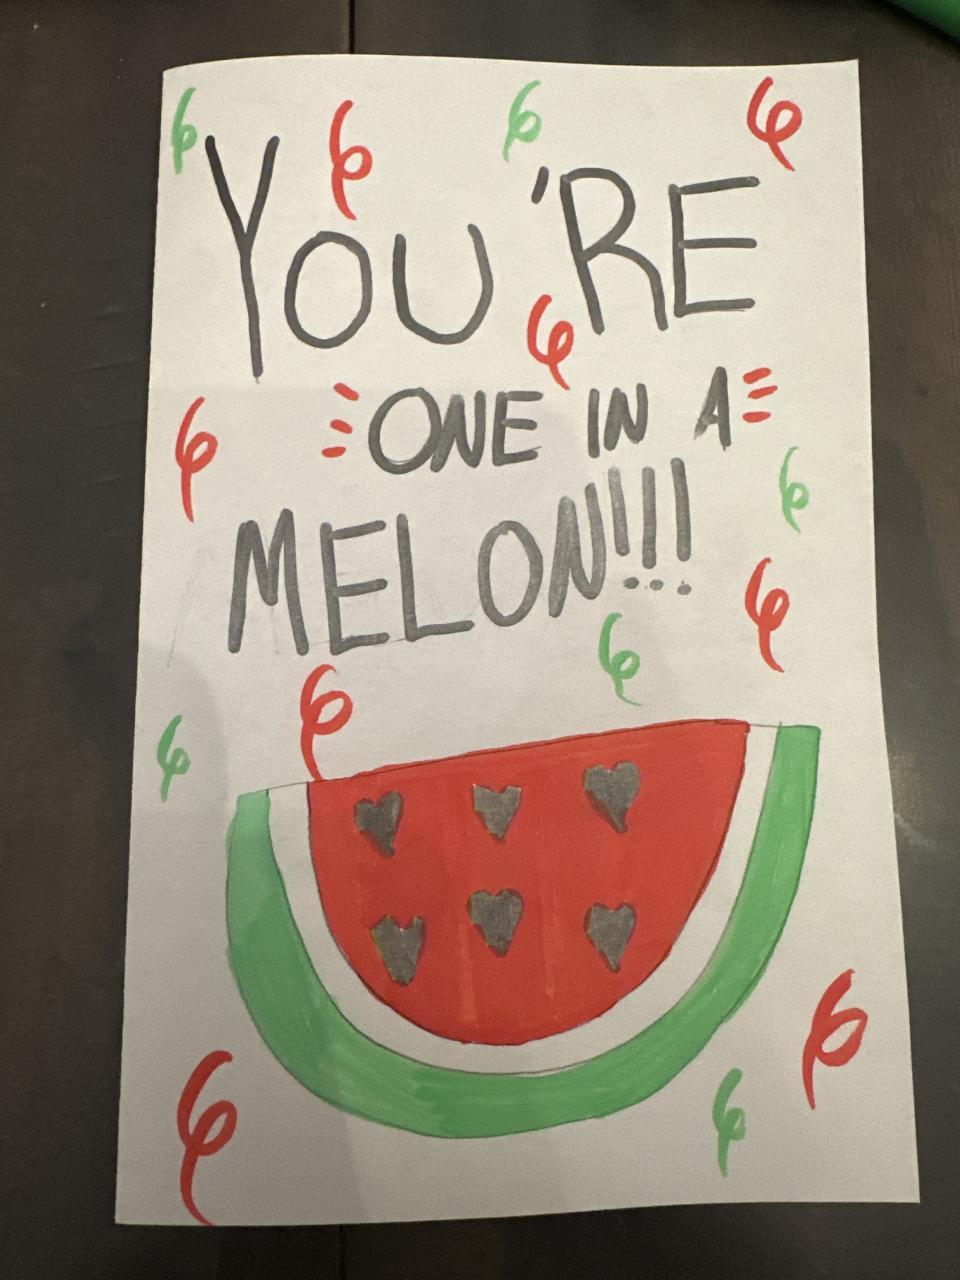 YOU'RE
ONE IN A
MELON!!!